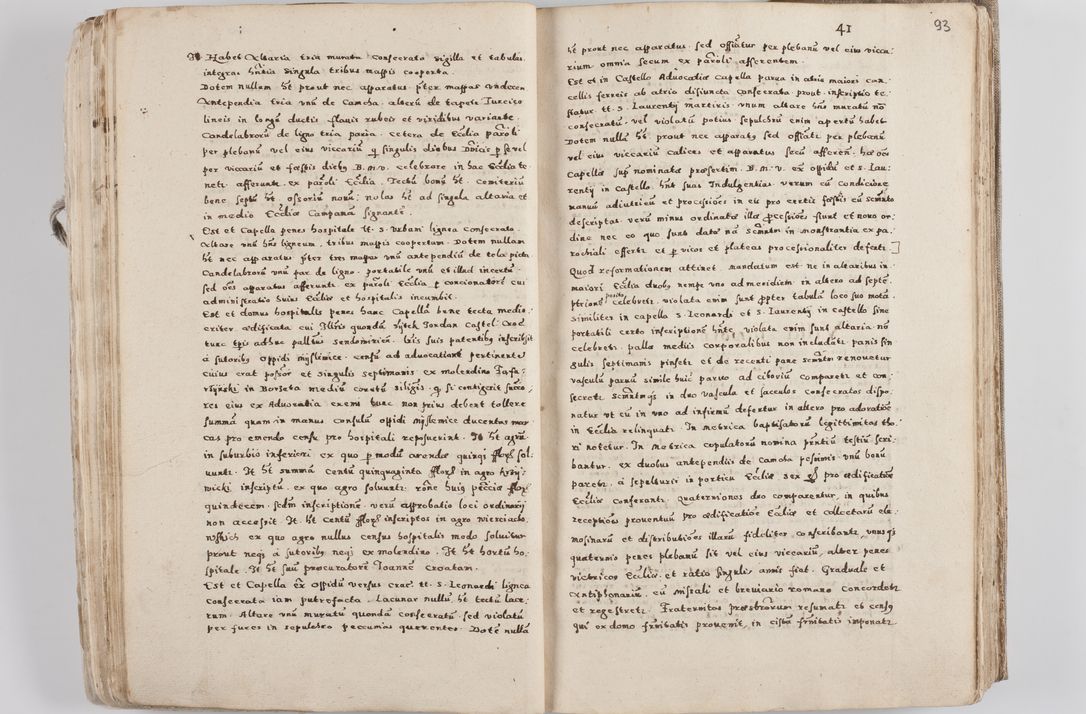 Habet Altaria tria murata consecrata vigilla et tabulas
integras hñtia singula tribus mappis cooperta.
Dotem nullam ht prout nec apparatus pter mappas undecem
Antependia tria unũ de Camcha alterũ de tapete Turcico
lineis in longũ ductis flavis rubeis et viridibus variante.
Candelabrorũ de ligno tria paria. cetera de Ecclia paroli
per plebanũ vel eius vicariũ q singulis diebus Dñicis p se vel
per vicariũ et festis diebus B.M.V. celebrare in hac Ecclia te
netr afferuntr ex paroli Ecclia. Tectũ bonũ ht. Cemiteriũ
bene septũ ht. ossoriũ novũ: nolas ht ad singula altaria et
in medio Eccliæ Campanã signantẽ.
Est et Capella penes hospitale tt. S. Urbani lignea Consecrata.
Altare unũ hñs ligneum, tribus mappis coopertum. Dotem nullam
ht nec apparatus pter tres mappas unũ antependiũ de tela picta
Candelabrorũ unũ par de ligno. portatile unũ et illud incertũ.
sed oẽs apparatus afferuntr ex paroli Ecclia p concionatorẽ cui
administratio huius Eccliæ et hospitalis incumbit.
Est et domus hospitalis penes hanc Capellã bene tecta medio,
criter ædificata cui Illris quondã Spytek Jordan Castel. Crac
tunc tpis adhuc palatinus Sendomirien. his suis patentibus inscripsit
a sutoribus oppidi Myslimice. censũ ad advocatione pertinentẽ
cuius erat possor et singulis septimanis ex molendino
in Borzeta mediũ coretũ siliginis. q si contigerit succo,
res eius ex Advocatia exemi hunc non prius debent tollere
summã quam in manus consulũ oppidi Myslemice ducentas mar
cas pro emendo censu pro hospitali reposuerint. It ht agrũ
in suburbio inferiori ex quo p modũ arendæ quinqz floz sol:
vuntr. It ht summã Centũ quinquaginta floz in agro
wicki inscriptũ. ex quo agro solvuntr. rõne huius peciæ floz
quindecem. sedm inscriptione. verũ approbatio loci ordinarij
non accessit. It. ht Centũ floz inscriptos in agro
ex quo agro nullus census hospitalis modo solvitur
prout neqz a sutoribus neqz ex molendino. It ht hortũ ho,
spitale. It ht suũ procuratorẽ Joannẽ Croatam.
Est et Capella ex Oppidũ versus Crac. tt. S. Leonardi lignea
Consecrata iam putrefacta. Lacunar nullũ ht tectũ lace
rum. Altare unũ muratũ quondã consecratũ sed violatũ
per fures in sepulchro peccunias querentes. Dotẽ nullã
41
93
ht prout nec apparatus. sed offitiatur per plebanũ vel eius vicca,
rium omnia secum ex paroli afferentem.
Est et in Castello Advocatiæ Capella parva in atrio maiori can,
cellis ferreis ab atrio disiuncta consecrata prout inscriptio te,
statur tt. S. Laurentij martiris unum altare hñs muratũ nõ
consecratũ vel violatũ potius sepulchrũ enim apertũ habet
Dotem nullã ht prout nec apparatus sed offitiatr per plebanũ
vel eius vicariũ calices et apparatus secũ afferẽn. hæ oẽs
Capellæ sup nominatæ præsertim. B.M.V. ex oppidũ et S. Lau,
rentij in Castello hñt suas Indulgentias verum cũ Condicione
manuũ adiutriciũ et processiões in eis pro certis festis cũ scmnto
descriptas. verũ minus ordinatæ illæ processiões fiunt et novo or,
dine nec eo quo sunt datæ nã scmntm in monstrantia ex pa,
rochiali effertr et p vicos et plateas processionaliter defertr.
Quod reformationem attinet. mandatum est ne in altaribus in
maiori Ecclia duobus nempe uno ad meridiem in altero ad septẽ,
ptrione posito celebretr. violata enim sunt propter tabulã loco suo motã.
similiter in capella S. Leonardi et S. Laurentij in castello sine
portatili certo inscriptione hñte violata enim sunt altaria nõ
celebretr. pallæ mediis corporalibus non includatr. panis sin,
gulis septimanis pinsetr et de recenti pane scmntm renovetur
vasculũ parvũ simile huic parvo ad ciboriũ comparetr et con,
secretr. scmntm in duo vascula et sacculos consecratos dispo,
natur ut cũ in uno ad infirmũ defertur in altero pro adoratiõe
in Ecclia relinquatr. In metrica baptisatorũ legittimitas tho,
ri notetur. In metrica copulatorũ nomina pñtiũ testiũ scri,
bantur. ex duobus antependiis de Camcha pessimis unũ bonũ
paretr. a sepelturis in porticu Eccliæ sex pro ædificatiõe
Eccliæ conferantr. Quaterniones duo comparentur, in quibus
receptiõis proventuũ pro ædificatiõe Eccliæ et collectarũ ele,
mosinarũ et distributiões illarũ fideliter conscribantr, unus qz
quaternio penes plebanũ sit vel eius vicariũ, alter penes
victricos Eccliæ. et ratio singulis annis fiat. Graduale et
Antiphonariũ cũ missali et breviario romano Concordetr
et regestretr. Fraternitas præsbrorum resumatr et census
qui ex domo frnitatis provenit, in cistã frnitatis imponatr.